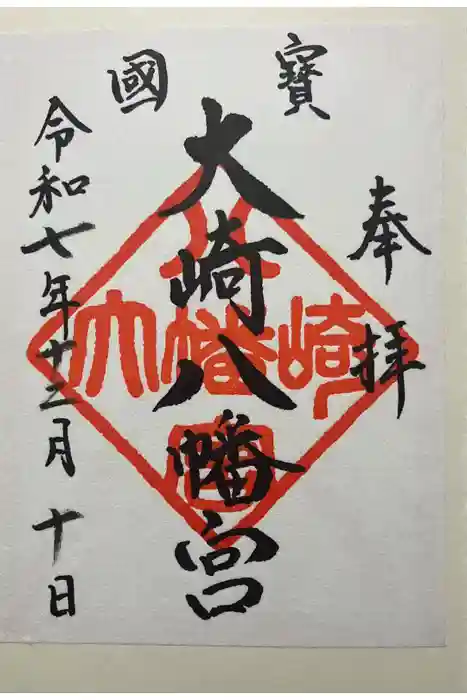 奉拝
寶國
大崎八幡宮
令和七年十二月十日
大崎八幡宮